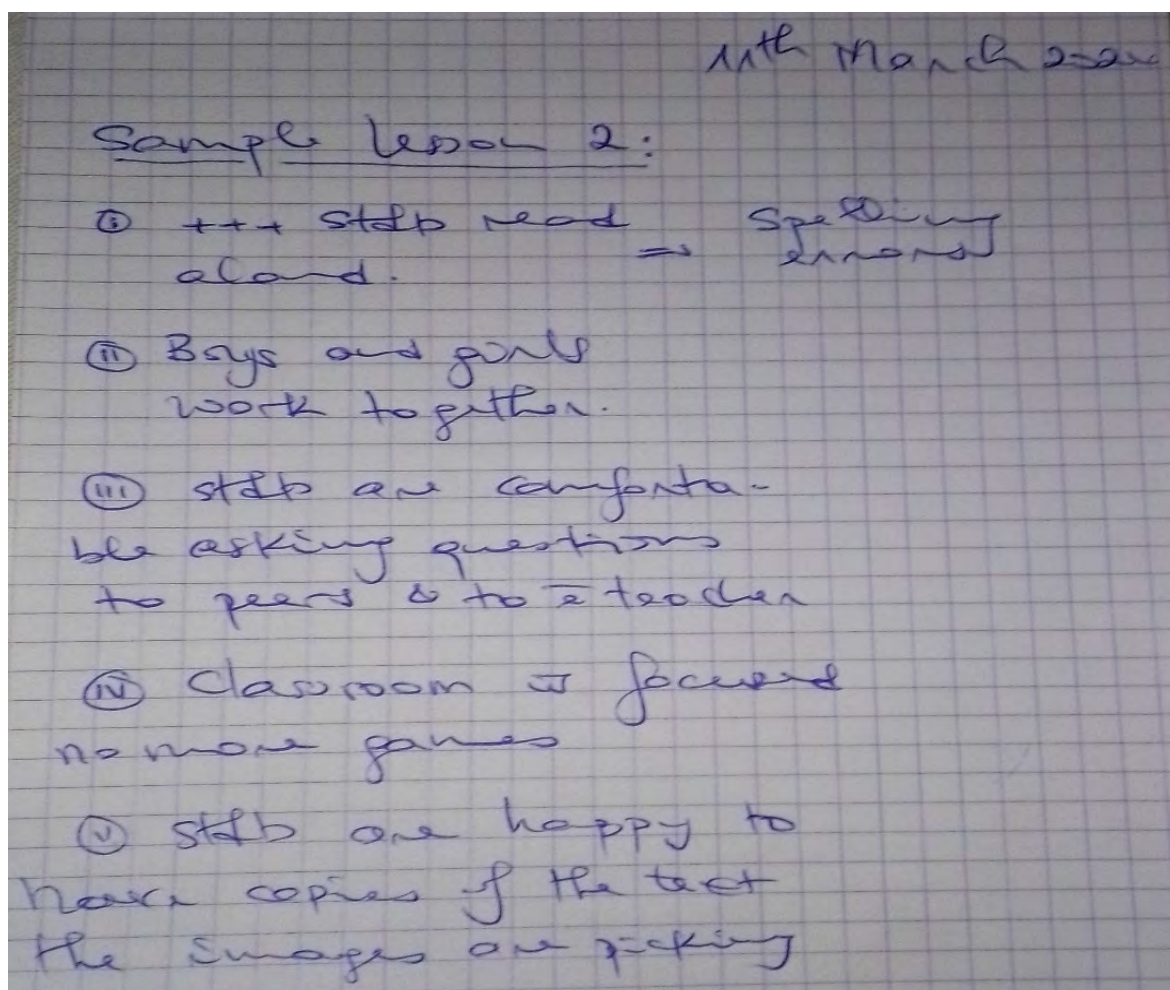 11th March 2020
Sample lesson 2:
(i) +++ stdts read => Spelling
aloud. errors
(ii) Boys and girls
work together.
(iii) stdts are comforta-
ble asking questions
to peers & to teacher
(iv) Classroom is focused
no more games
(v) stdts are happy to
have copies of the text
the images are picking